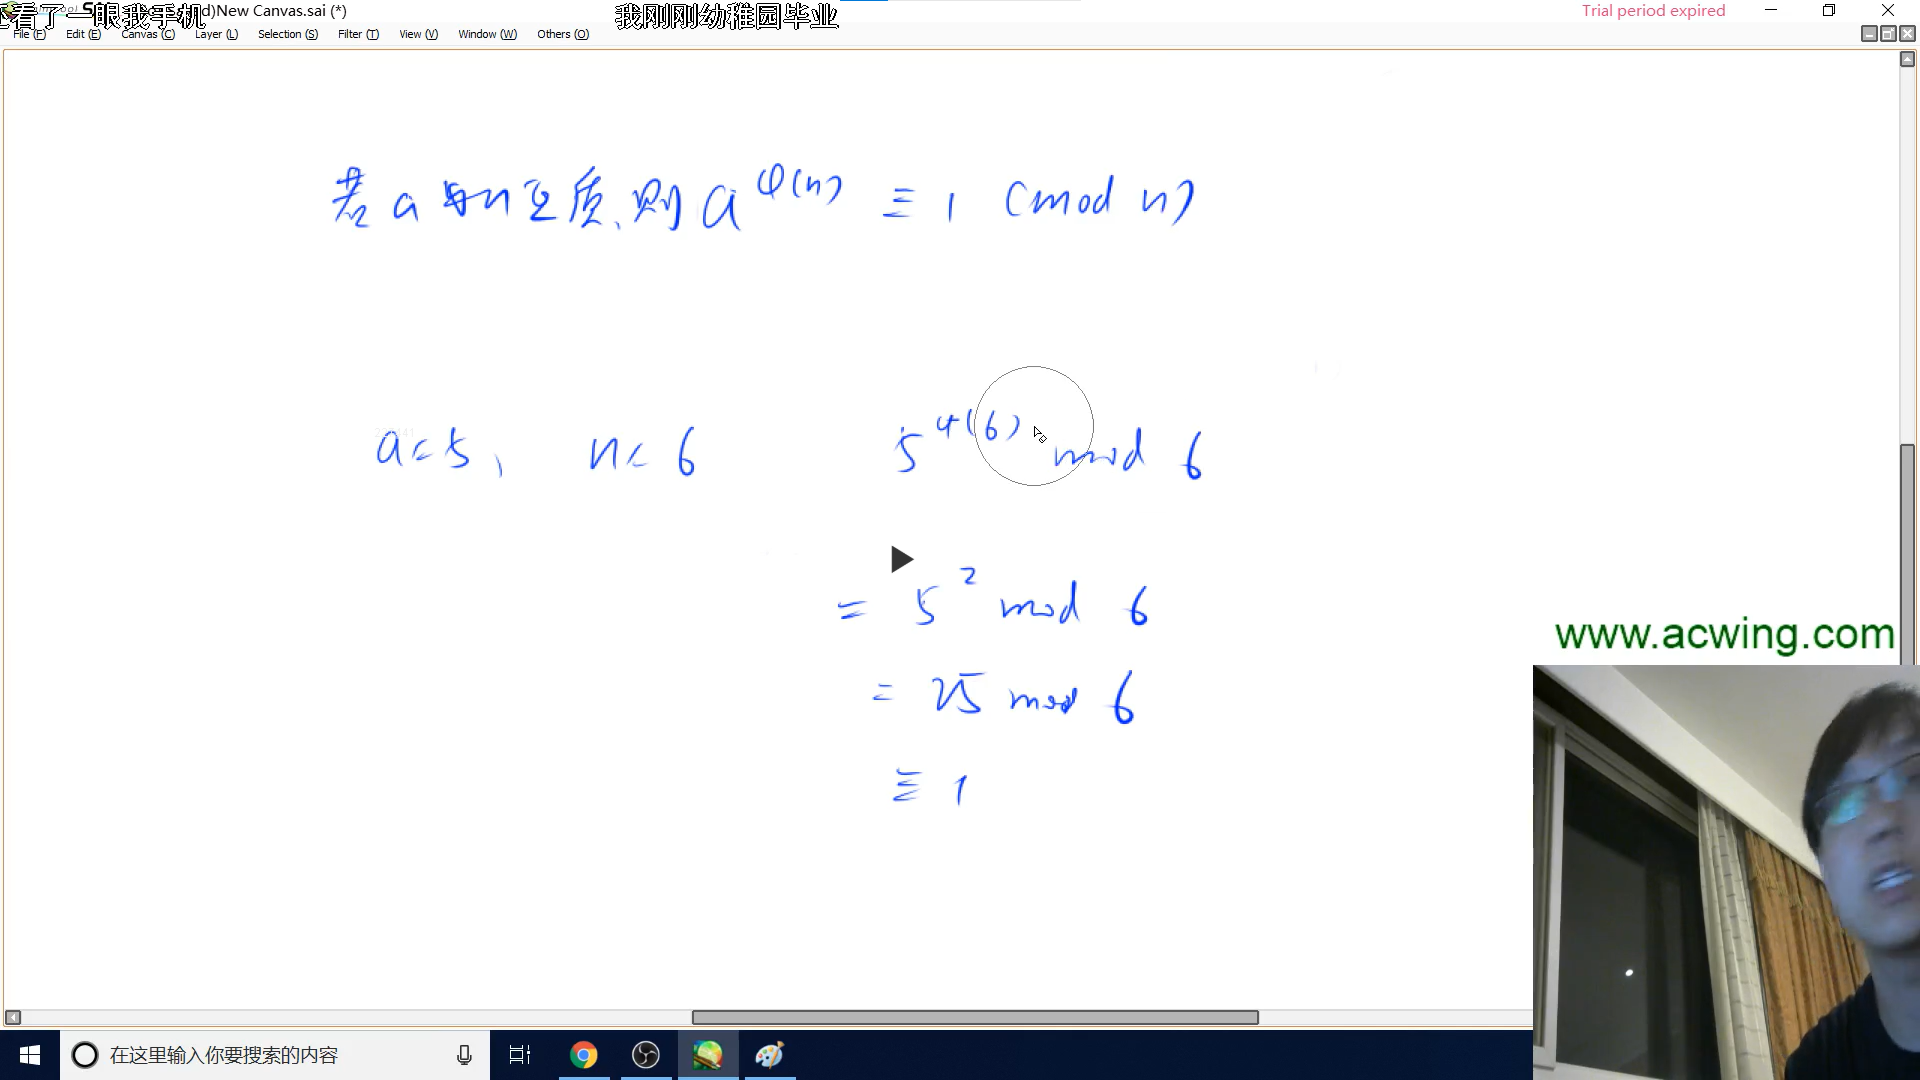 看了一眼我手机
我刚刚幼稚园毕业
d)New Canvas.sai (*)
Trial period expired
File (F) Edit (E) Canvas (C) Layer (L) Selection (S) Filter (T) View (V) Window (W) Others (O)
若a与n互质,则a^φ(n) ≡ 1 (mod n)
a=5, n=6
5^φ(6) mod 6
= 5^2 mod 6
= 25 mod 6
≡ 1
www.acwing.com
在这里输入你要搜索的内容